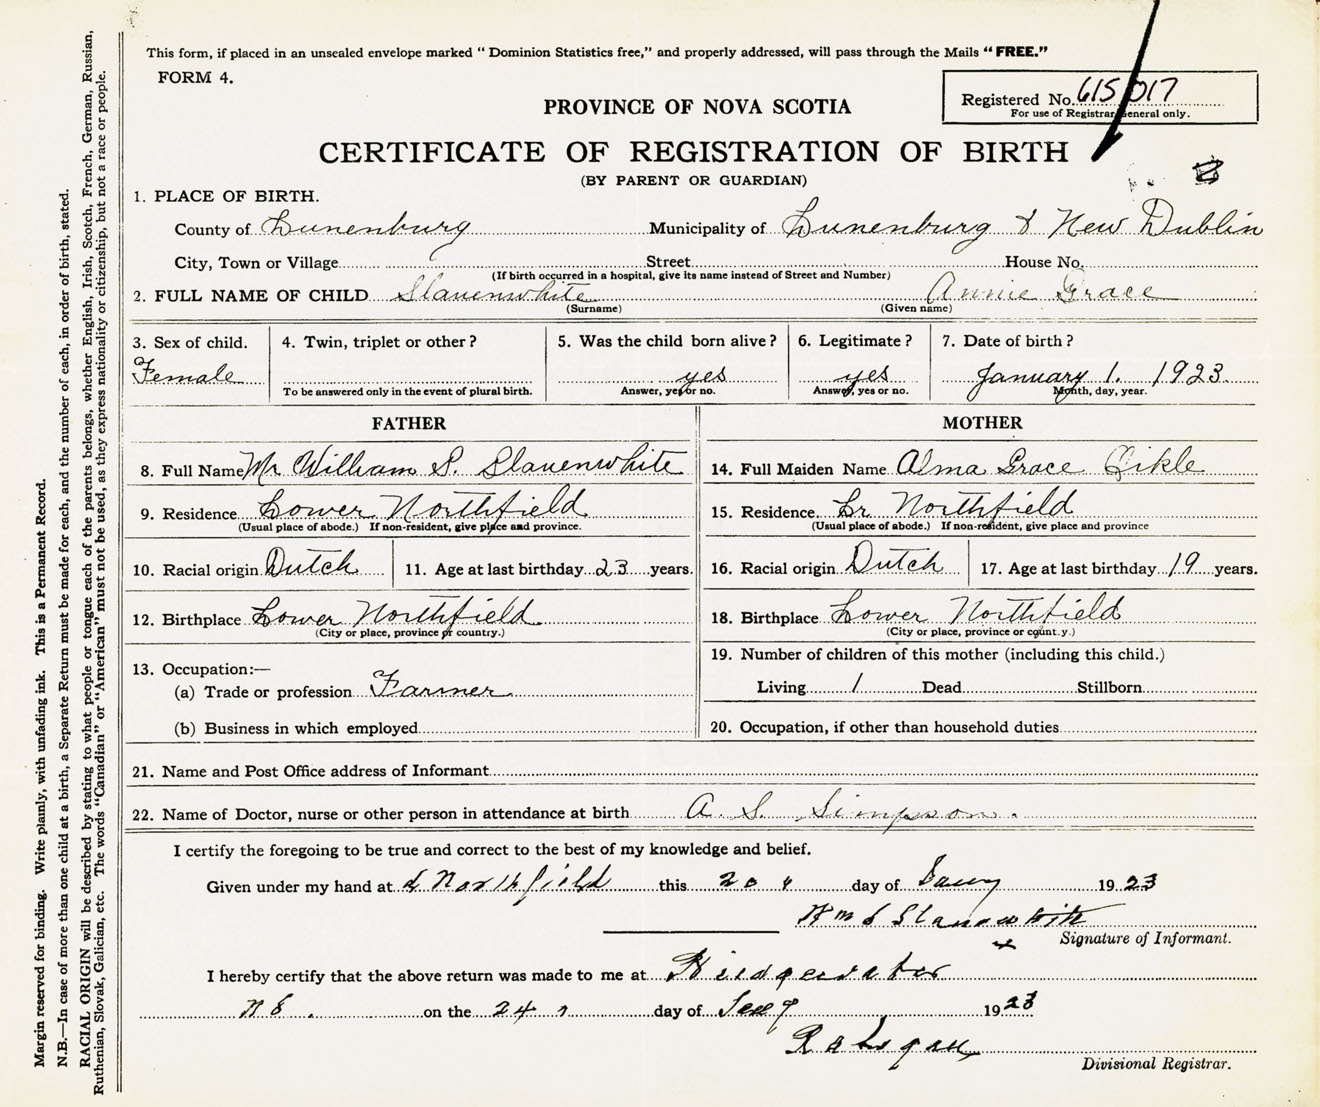 This form, if placed in an unsealed envelope marked “ Dominion Statistics free,” and properly addressed, will pass through the Mails “ FREE.”
FORM 4.
Registered No. 615 017
For use of Registrar General only.
PROVINCE OF NOVA SCOTIA
CERTIFICATE OF REGISTRATION OF BIRTH
(BY PARENT OR GUARDIAN)
1. PLACE OF BIRTH.
County of Lunenburg Municipality of Lunenburg & New Dublin
City, Town or Village Street House No.
(If birth occurred in a hospital, give its name instead of Street and Number)
2. FULL NAME OF CHILD Slauenwhite Annie Grace
(Surname) (Given name)
3. Sex of child. 4. Twin, triplet or other? 5. Was the child born alive? 6. Legitimate? 7. Date of birth?
Female yes yes January 1. 1923.
To be answered only in the event of plural birth. Answer, yes or no. Answer, yes or no. Month, day, year.
FATHER
8. Full Name Mr William S. Slauenwhite
9. Residence Lower Northfield
(Usual place of abode.) If non-resident, give place and province.
10. Racial origin Dutch 11. Age at last birthday 23 years.
12. Birthplace Lower Northfield
(City or place, province or country.)
13. Occupation:—
(a) Trade or profession Farmer
(b) Business in which employed
MOTHER
14. Full Maiden Name Alma Grace
15. Residence. Lr Northfield
(Usual place of abode.) If non-resident, give place and province
16. Racial origin Dutch 17. Age at last birthday 19 years.
18. Birthplace Lower Northfield
(City or place, province or country.)
19. Number of children of this mother (including this child.)
Living 1 Dead Stillborn
20. Occupation, if other than household duties
21. Name and Post Office address of Informant
22. Name of Doctor, nurse or other person in attendance at birth A. S. Simpson.
I certify the foregoing to be true and correct to the best of my knowledge and belief.
Given under my hand at L Northfield this 20 day of Jany 1923
Wm S Slauenwhite
Signature of Informant.
I hereby certify that the above return was made to me at Bridgewater
N S. on the 24 day of 1923
Divisional Registrar.
Margin reserved for binding. Write plainly, with unfading ink. This is a Permanent Record.
N.B.—In case of more than one child at a birth, a Separate Return must be made for each, and the number of each, in order of birth, stated.
RACIAL ORIGIN will be described by stating to what people or tongue each of the parents belongs, whether English, Irish, Scotch, French, German, Russian,
Ruthenian, Slovak, Galician, etc. The words “Canadian” or “American” must not be used, as they express nationality or citizenship, but not a race or people.